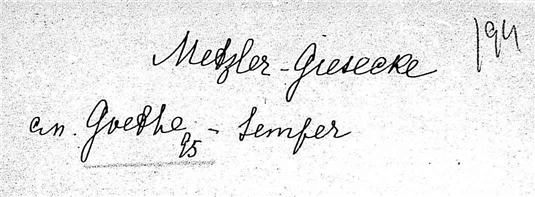 194
Metzler-Giesecke
an. Goethe 95 - Semper